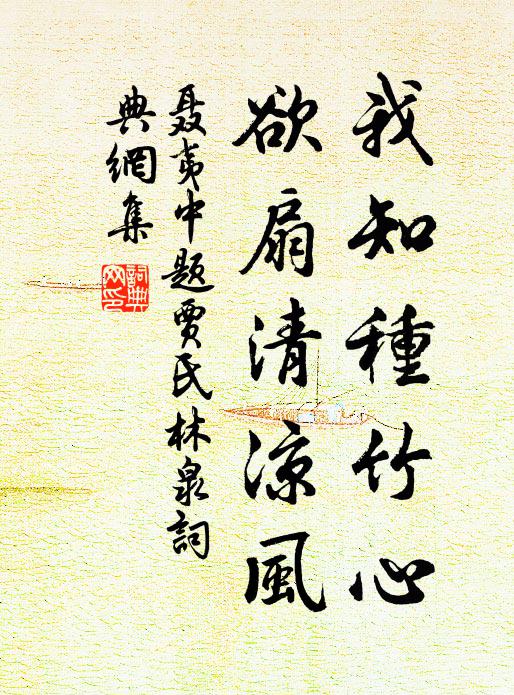 我知種竹心
欲扇清涼風
聂夷中題賈氏林泉詞
典網集
詞典
网印